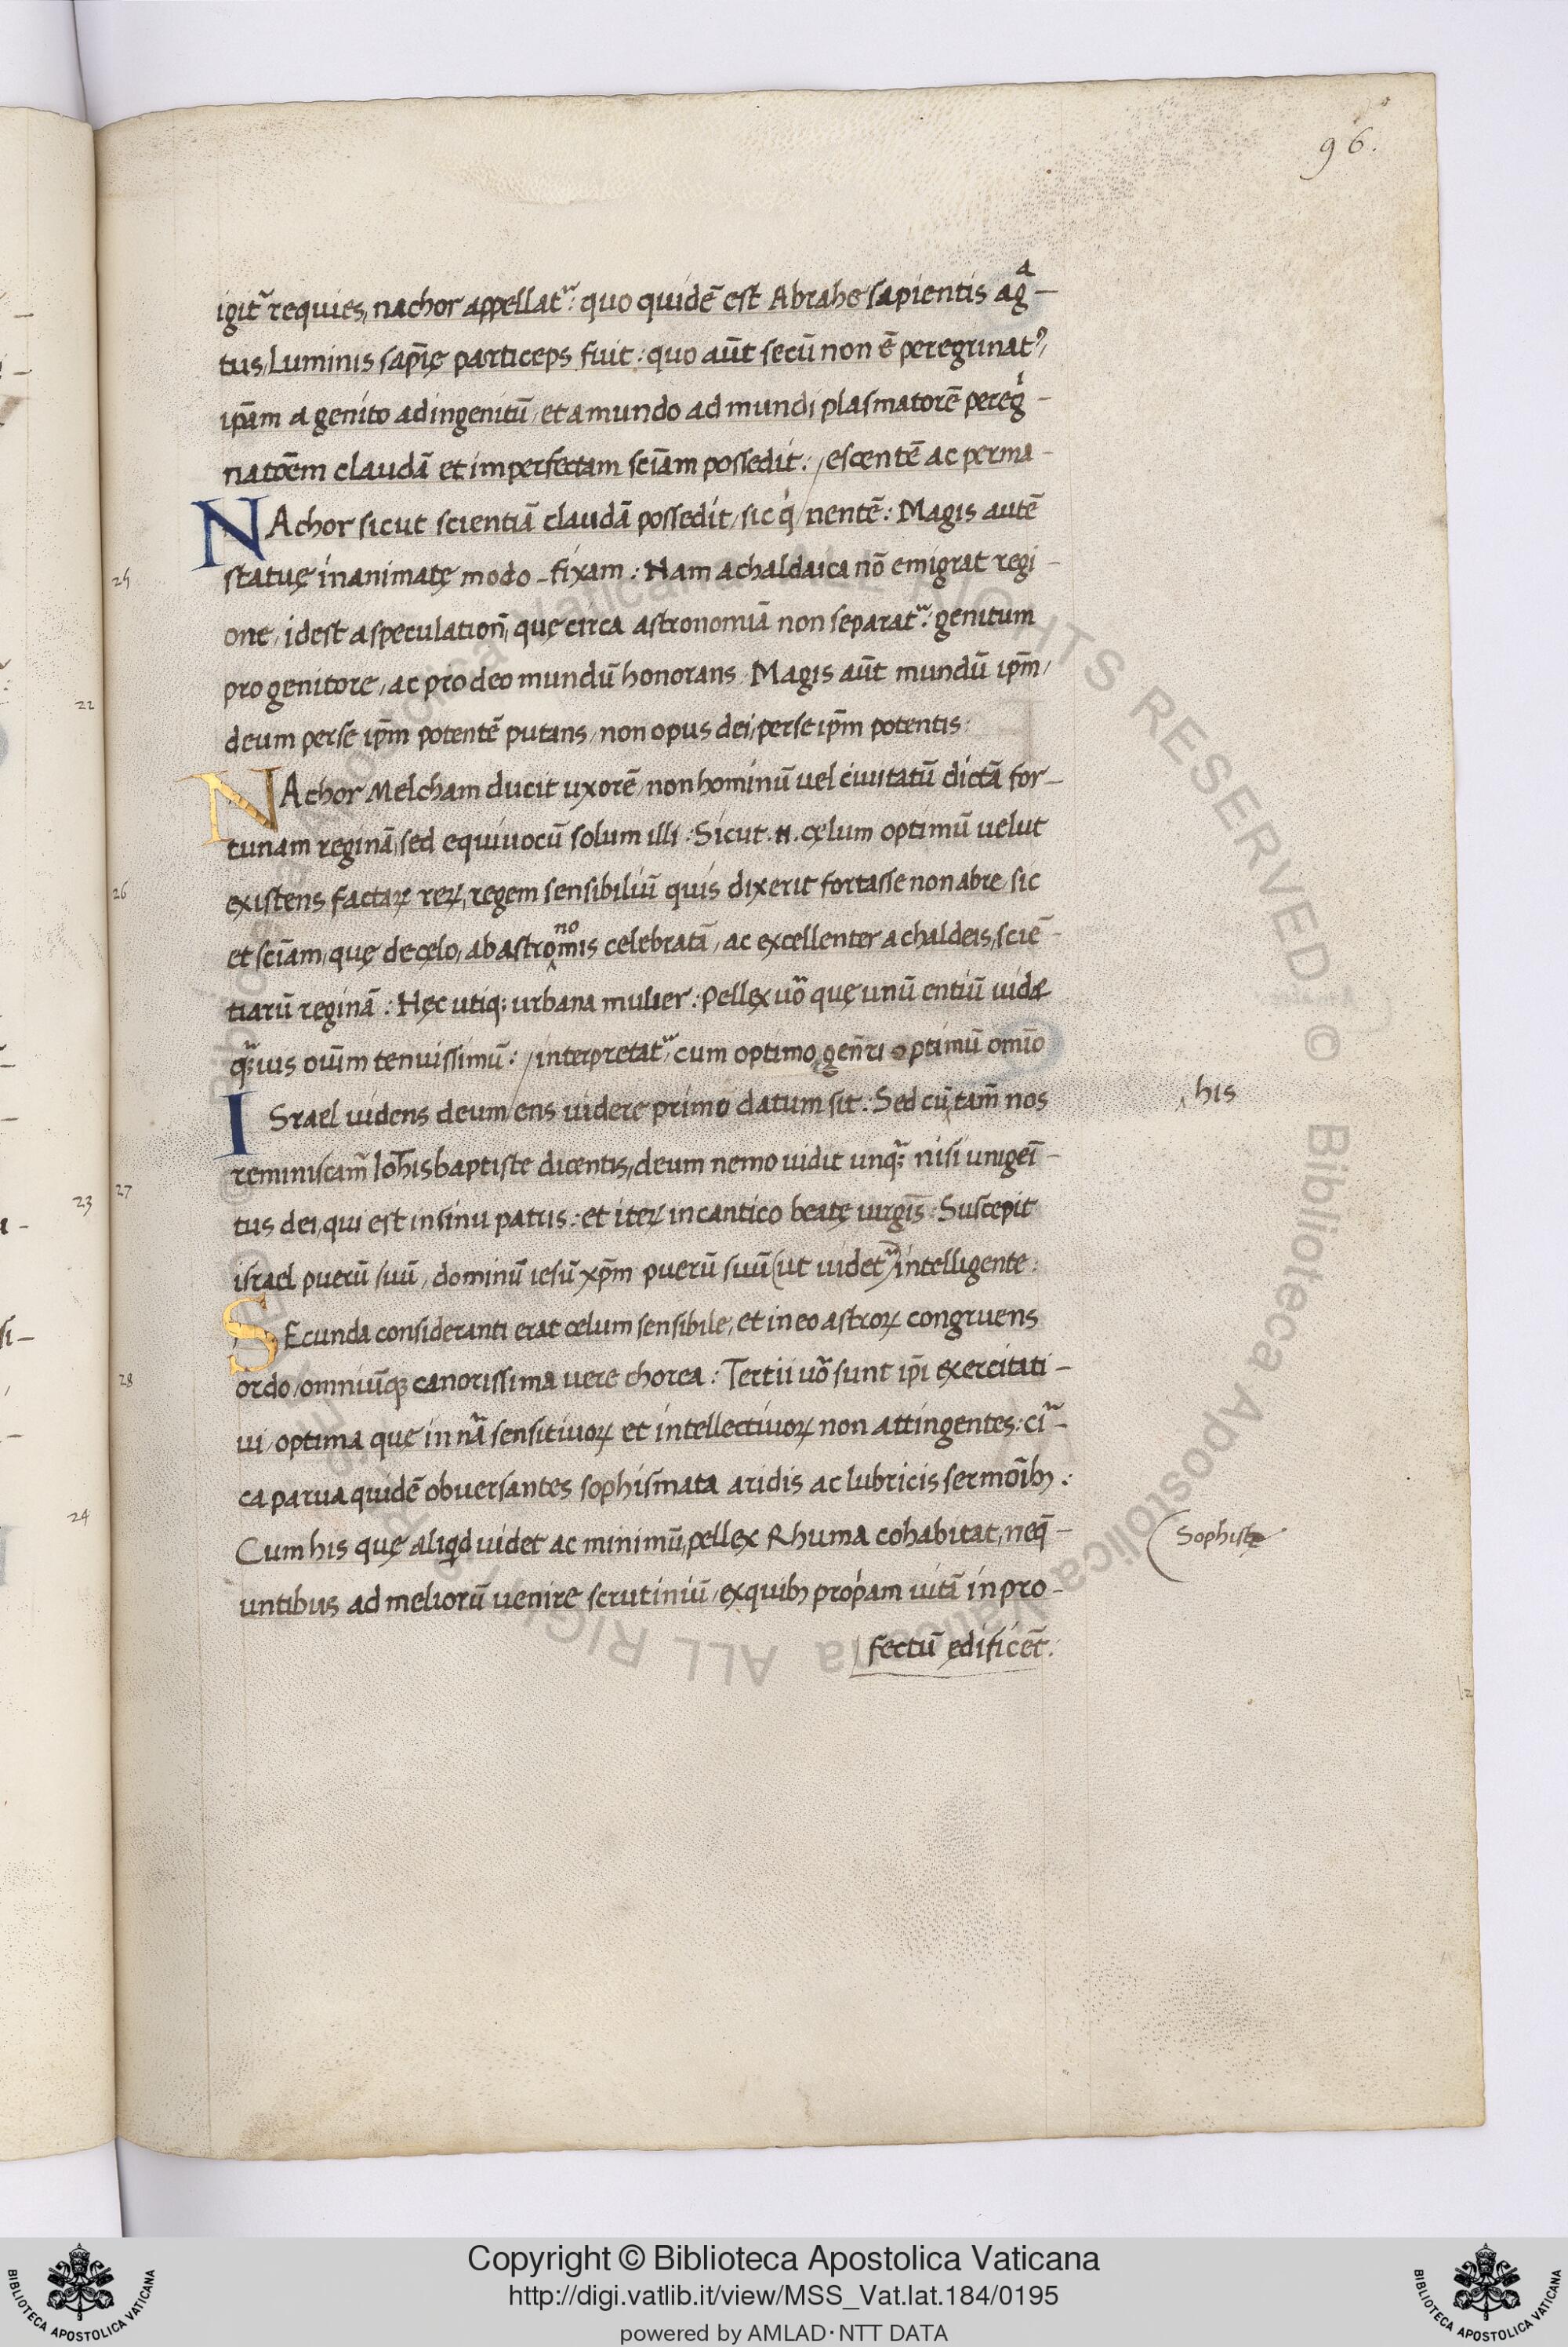 96.
igit᷑ requies, nachor appellat᷑: quo quidē est Abrahe sapientis agͣ-
tus, Luminis sapīe particeps fuit: quo aūt secū non ē peregrinatꝰ,
ip̄am a genito ad ingenitū, et a mundo ad mundi plasmatorē peregͥ-
natōem claudā et imperfectam sciam possedit: / escentē ac perma-
NAchor sicut scientiā claudā possedit, sic qͥ / nentē: Magis autē
statuę inanimatę modo fixam: Nam a chaldaica nō emigrat regi-
one, idest a speculation̄, quę circa astronomiā non separat᷑: genitum
pro genitore, ac pro deo mundū honorans. Magis aūt mundū ip̄m,
deum per se ip̄m potentē putans, non opus dei, per se ip̄m potentis:
NAchor Melcham ducit uxorē, non hominū uel ciuitatū dictā for-
tunam reginā, sed equiuocū solum illi: Sicut .n. cęlum optimū uelut
existens factaꝝ reꝝ, regem sensibiliū quis dixerit fortasse non abre, sic
no
et sciām, quę de cęlo, ab astromis celebratā, ac excellenter a chaldeis, sciē-
tiarū reginā: Hęc utiqꝫ urbana mulier: Pellex uō quę unū entiū uidæ
qᷓuis oium tenuissimū: / interpretat᷑, cum optimo gen̄ri optimū omīo
ISrael uidens deum / ens uidere primo datum sit: Sed cū tam̄ nos
his
reminiscam᷑ Iohīs baptiste dicentis, deum nemo uidit unqᷓ nisi unigeī-
tus dei, qui est in sinu patris: et iteꝝ in cantico beatę uirgīs: Suscepit
israel puerū suū, dominū iesū xp̄m puerū suū (ut uidet᷑) intelligente:
SEcunda consideranti erat cęlum sensibile, et in eo astroꝝ congruens
ordo, omniūqꝫ canorissima uere chorea: Tertii uō sunt ip̄i exercitati-
ui, optima quę in nā sensitiuoꝝ et intellectiuoꝝ non attingentes: ci᷑-
ca parua quidē obuersantes sophismata aridis ac lubricis sermōibꝫ:
Cum his quę aliqd uidet ac minimū, pellex Rhuma cohabitat, neq̄-
Sophistę
untibus ad meliorū uenire scrutiniū, ex quibꝫ prop̄am uitā in pro-
fectū edificēt:
25
22
26
23
27
28
24
Copyright © Biblioteca Apostolica Vaticana
http://digi.vatlib.it/view/MSS_Vat.lat.184/0195
powered by AMLAD·NTT DATA
BIBLIOTECA APOSTOLICA VATICANA
BIBLIOTECA APOSTOLICA VATICANA